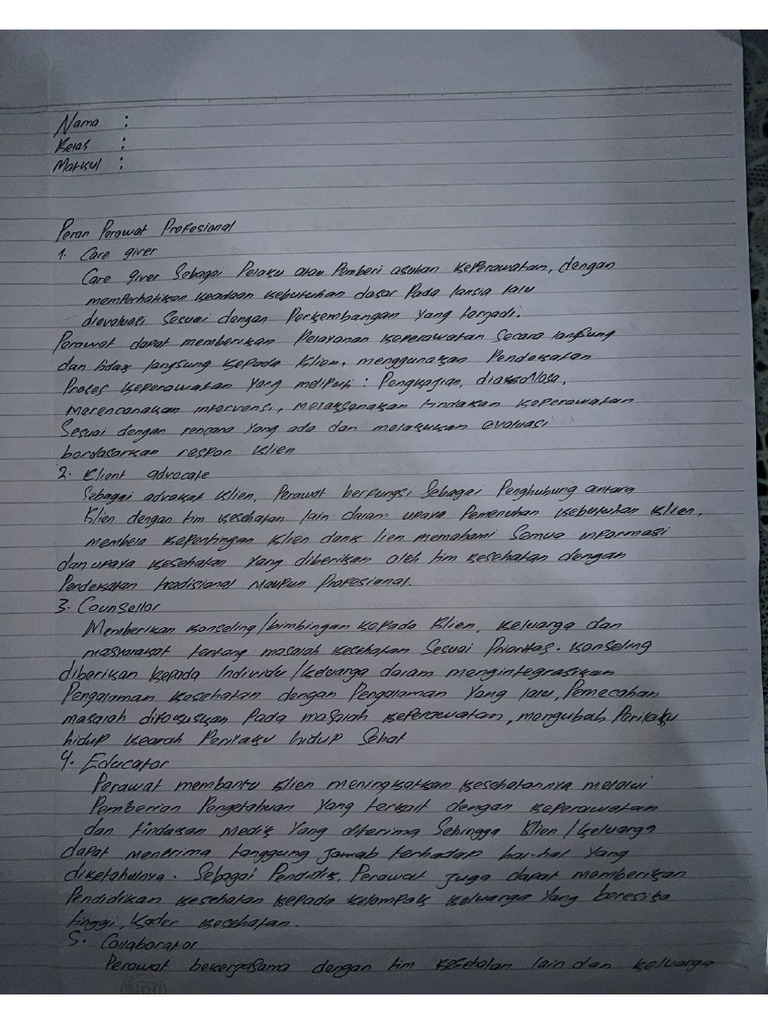 Nama :
Kelas :
Matkul :
Peran Perawat Profesional
1. Care giver
Care giver Sebagai Pelaku atau Pemberi asuhan keperawatan, dengan
memperhatikan keadaan kebutuhan dasar Pada lansia lalu
dievaluasi Sesuai dengan Perkembangan Yang terjadi.
Perawat dapat memberikan Pelayanan keperawatan Secara langsung
dan tidak langsung kepada klien, menggunakan Pendekatan
Proses keperawatan Yang meliputi : Pengkajian, diagnosa,
merencanakan intervensi, melaksanakan tindakan keperawatan
Sesuai dengan rencana Yang ada dan melakukan evaluasi
berdasarkan respon klien
2. Klient advocate
Sebagai advokat klien, Perawat berfungsi Sebagai Penghubung antara
Klien dengan tim kesehatan lain dalam upaya Pemenuhan kebutuhan klien,
membela kepentingan klien dank lien memahami Semua informasi
dan upaya kesehatan Yang diberikan oleh tim kesehatan dengan
Pendekatan tradisional maupun Profesional.
3. Counsellor
Memberikan konseling/bimbingan kepada klien, keluarga dan
masyarakat tentang masalah kesehatan Sesuai Prioritas. konseling
diberikan kepada Individu/keluarga dalam mengintegrasikan
Pengalaman kesehatan dengan Pengalaman Yang lalu, Pemecahan
masalah difokuskan Pada masalah keperawatan, mengubah Perilaku
hidup kearah Perilaku hidup Sehat
4. Educator
Perawat membantu klien meningkatkan kesehatannya melalui
Pemberian Pengetahuan Yang terkait dengan keperawatan
dan tindakan medik Yang diterima Sehingga klien/keluarga
dapat menerima tanggung Jawab terhadap hal-hal Yang
diketahuinya. Sebagai Pendidik, Perawat Juga dapat memberikan
Pendidikan kesehatan kepada kelompok keluarga Yang beresiko
tinggi, kader kesehatan.
5. Collaborator
Perawat bekergasama dengan tim kesehatan lain dan keluarga